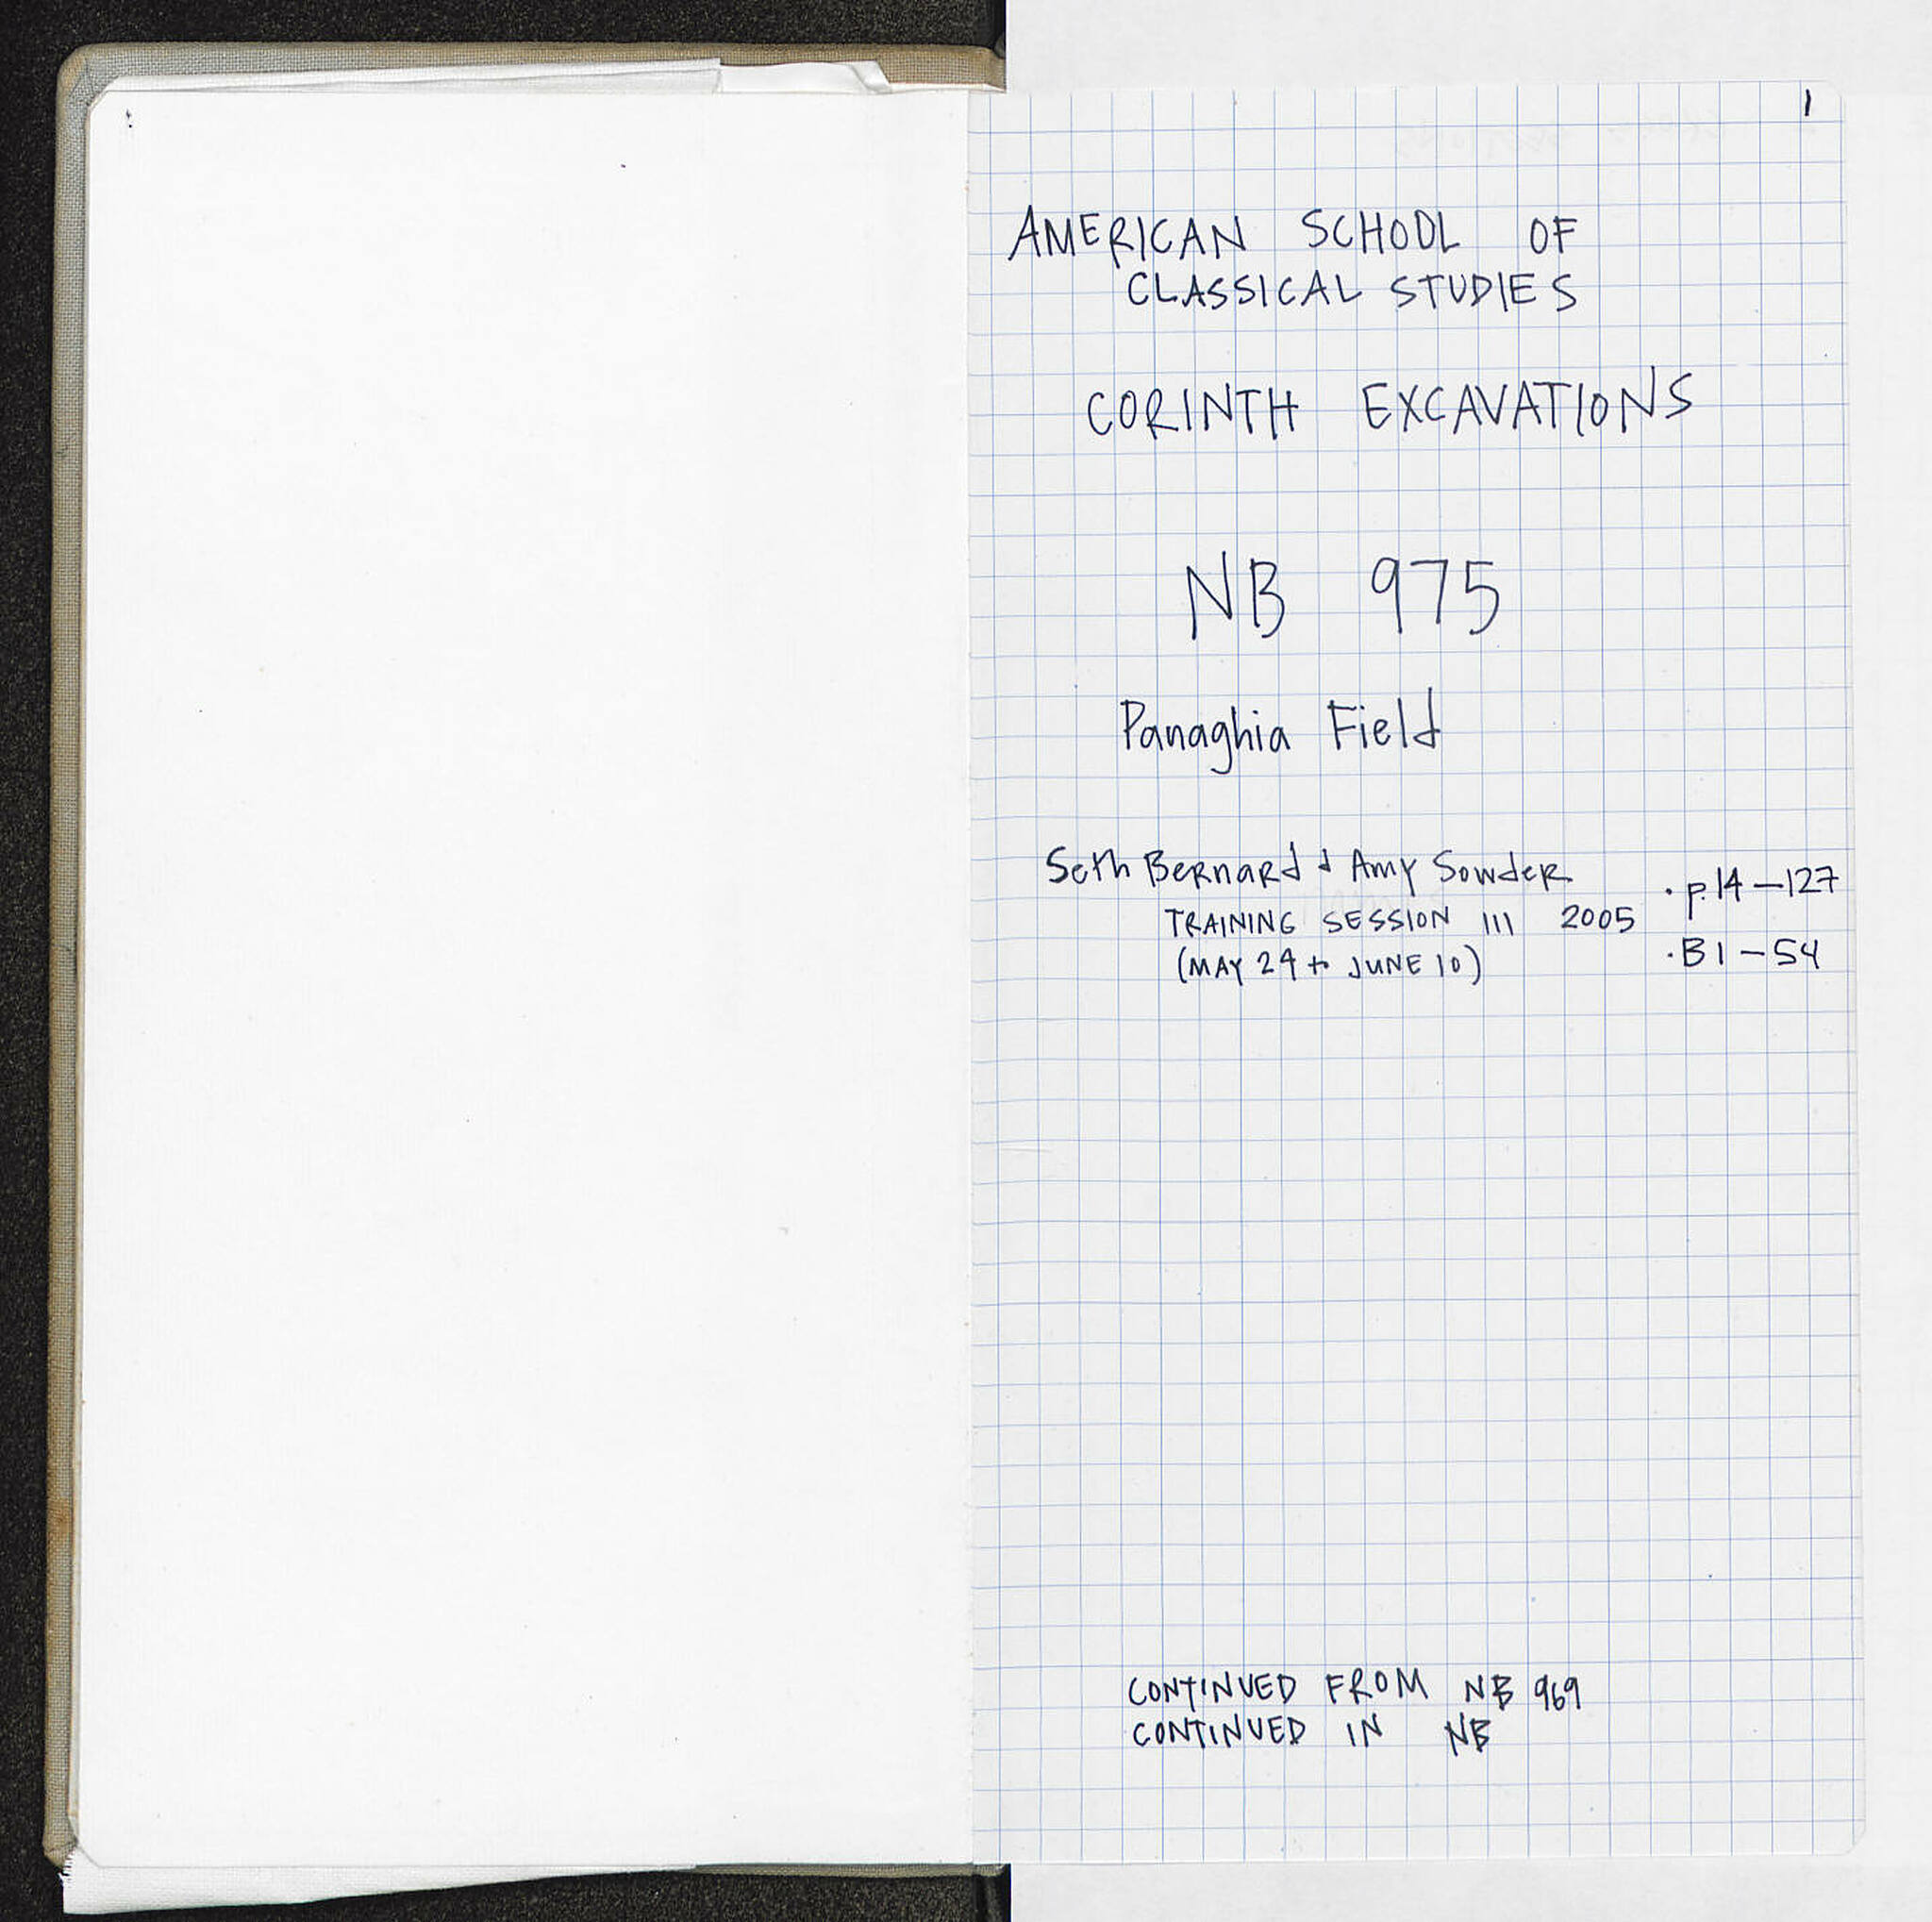 1
AMERICAN SCHOOL OF
CLASSICAL STUDIES
CORINTH EXCAVATIONS
NB 975
Panaghia Field
Seth Bernard + Amy Sowder
TRAINING SESSION III 2005
(MAY 24 to JUNE 10)
· p. 14 – 127
· B1 – 54
CONTINUED FROM NB 969
CONTINUED IN NB